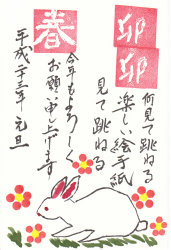 卯
卯
何見て跳ねる
楽しい絵手紙
見て跳ねる
春
今年もよろしく
お願い申し上げます
平成二十三年 元旦